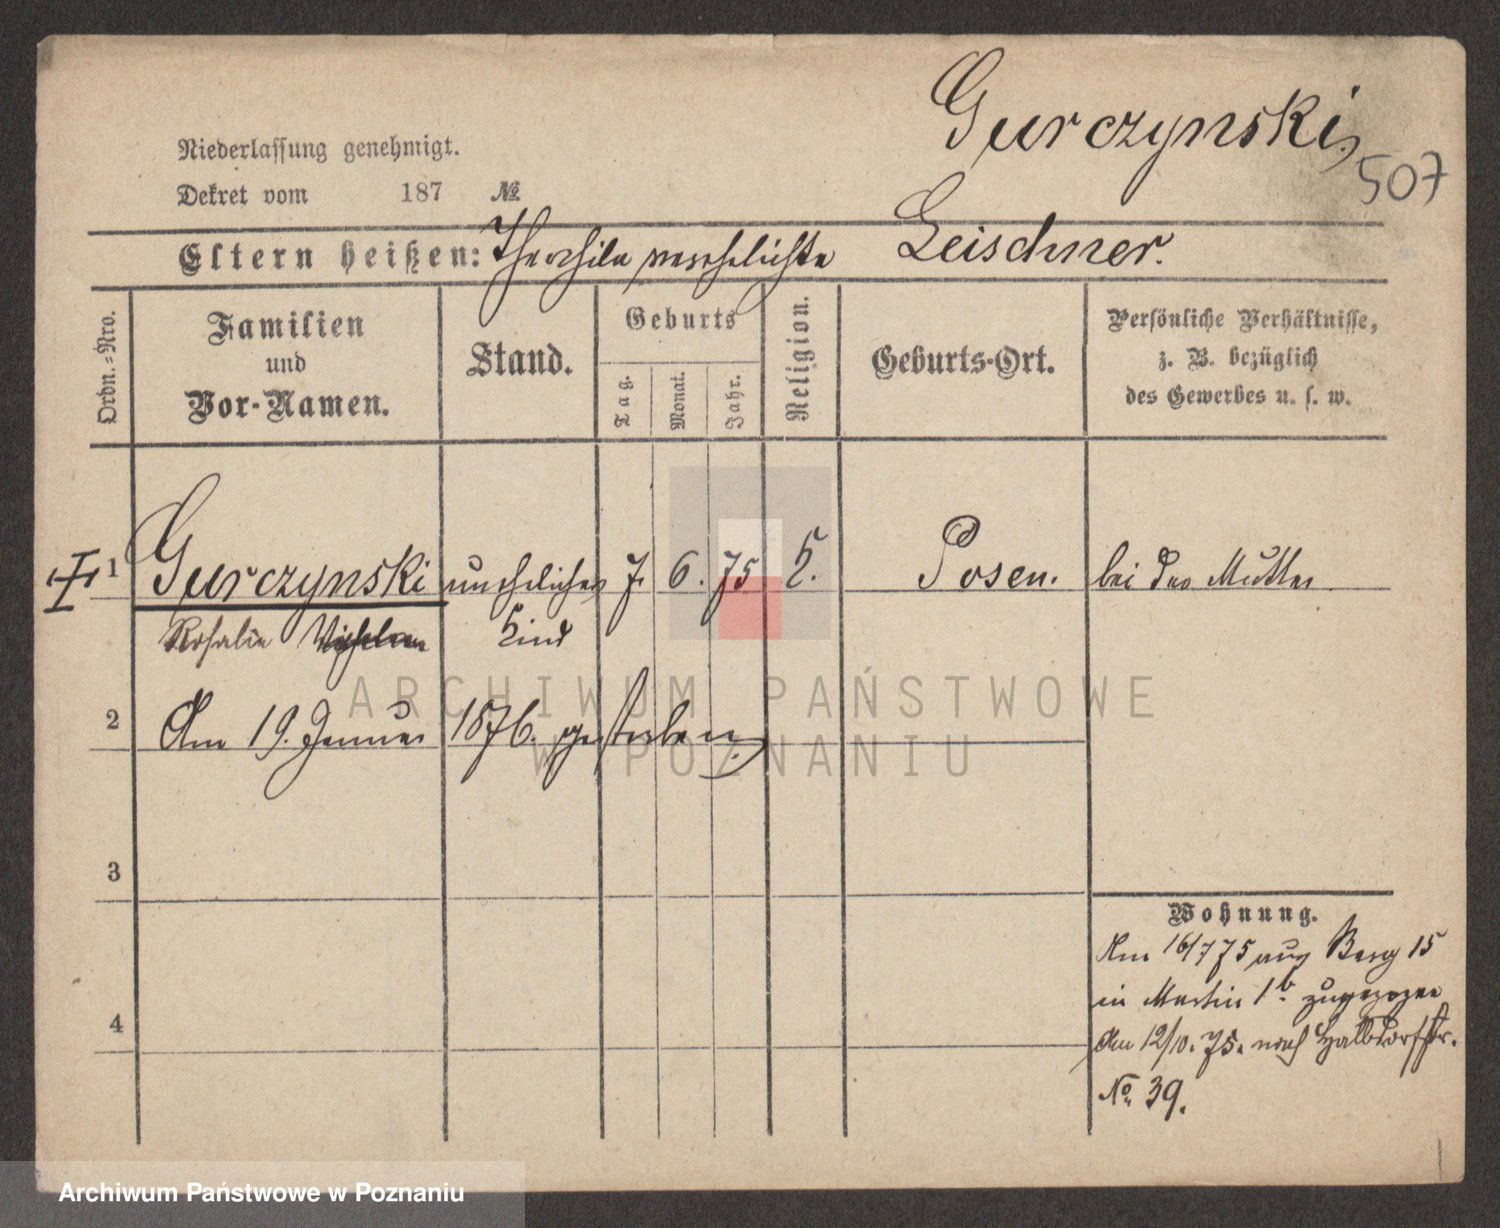 Gurczynski,
507
Niederlassung genehmigt.
Dekret vom 187 №
Eltern heißen: verehelichte Leischner.
Ordn.-Nro.
Familien
und
Vor-Namen.
Stand.
Geburts
Tag.
Monat.
Jahr.
Religion.
Geburts-Ort.
Persönliche Verhältnisse,
z. B. bezüglich
des Gewerbes u. s. w.
1 Gurczynski unehliches 7. 6. 75 k. Posen. bei der Mutter
Rosalie Kind
ARCHIWUM PAŃSTWOWE
W POZNANIU
2 Am 19. Januar 1876. gestorben.
3
Wohnung.
Am 16/7 75 aus Berg 15
in Martin 1b. zugezogen
4
Am 12/10. 75. nach Halbdorfstr.
No. 39.
Archiwum Państwowe w Poznaniu